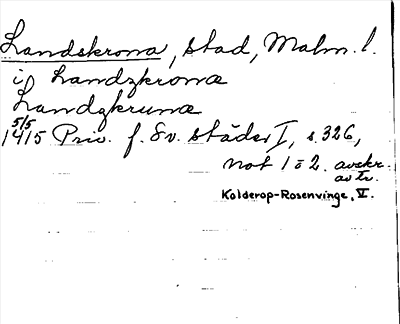 Landskrona, stad, Malm. l.
i Landzkronæ
Landzkrunæ
5/5
1415 Priv. f. Sv. städer I, s. 326,
not 1 o 2. avskr.
av tr.
Kolderop-Rosenvinge, V.